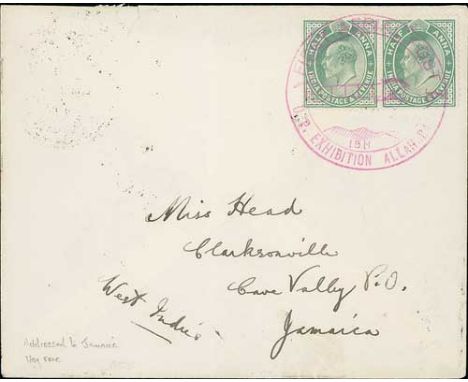 HALF ANNA
INDIA POSTAGE & REVENUE
HALF ANNA
INDIA POSTAGE & REVENUE
FIRST
U.P. EXHIBITION ALLAHABAD
1911
Miss Head
Clarksonville
Cave Valley P.O.
Jamaica
West Indies
Addressed to Jamaica
Very rare